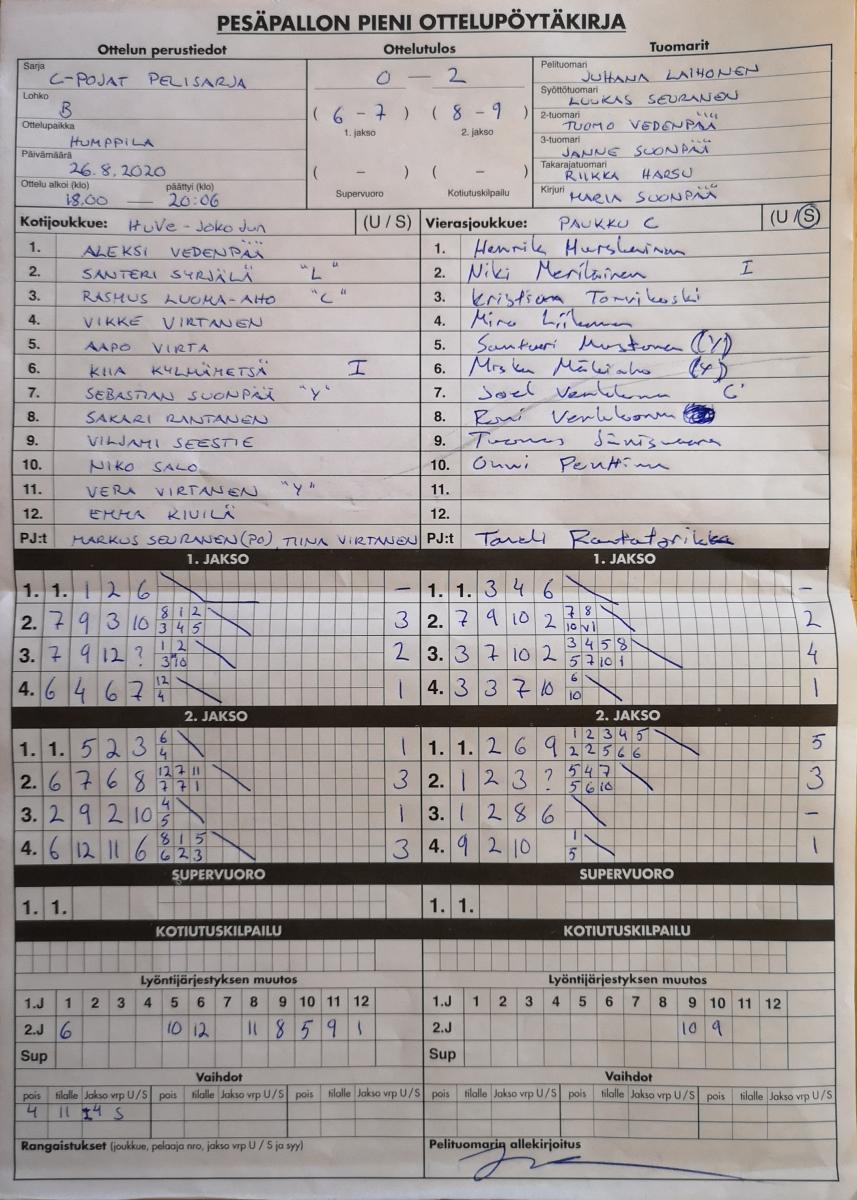 PESÄPALLON PIENI OTTELUPÖYTÄKIRJA
Ottelun perustiedot Ottelutulos Tuomarit
Sarja
C-POJAT PELISARJA
Lohko
B
Ottelupaikka
HUMPPILA
Päivämäärä
26.8.2020
Ottelu alkoi (klo) päättyi (klo)
18.00 — 20:06
0 — 2
( 6 - 7 ) ( 8 - 9 )
1. jakso 2. jakso
( - ) ( - )
Supervuoro Kotiutuskilpailu
Pelituomari
JUHANA LAIHONEN
Syöttötuomari
LUUKAS SEURANEN
2-tuomari
TUOMO VEDENPÄÄ
3-tuomari
JANNE SUONPÄÄ
Takarajatuomari
RIIKKA HARSU
Kirjuri
MARIA SUONPÄÄ
Kotijoukkue: HUVE - JOKO JUN (U / S)
1. ALEKSI VEDENPÄÄ
2. SANTERI SYRJÄLÄ "L"
3. RASMUS LUOMA-AHO "C"
4. VIKKE VIRTANEN
5. AAPO VIRTA
6. KIIA KYLMÄMETSÄ I
7. SEBASTIAN SUONPÄÄ "Y"
8. SAKARI RANTANEN
9. VILJAMI SEESTIE
10. NIKO SALO
11. VERA VIRTANEN "Y"
12. EMMA KIVILÄ
PJ:t MARKUS SEURANEN (PO), TIINA VIRTANEN
Vierasjoukkue: PAUKKU C (U / S)
1. Henrik
2. Niki Meriläinen I
3. Kristian Torvikoski
4.
5. Santeri Mustonen (Y)
6. Miska Mäkiaho (Y)
7. Joel C
8. Roni
9. Tuomas
10. Onni Penttinen
11.
12.
PJ:t
1. JAKSO
1. 1. 1 2 6 –
2. 7 9 3 10 8 1 2 3 4 5 3
3. 7 9 12 ? 1 2 3 10 2
4. 6 4 6 7 12 4 1
2. JAKSO
1. 1. 5 2 3 6 4 1
2. 6 7 6 8 12 7 11 7 7 1 3
3. 2 9 2 10 4 5 1
4. 6 12 11 6 8 1 5 6 2 3 3
SUPERVUORO
1. 1.
KOTIUTUSKILPAILU
Lyöntijärjestyksen muutos
1.J 1 2 3 4 5 6 7 8 9 10 11 12
2.J 6 10 12 11 8 5 9 1
Sup
Vaihdot
pois tilalle Jakso vrp U / S pois tilalle Jakso vrp U / S pois tilalle Jakso vrp U / S
4 11 4 S
Rangaistukset (joukkue, pelaaja nro, jakso vrp U / S ja syy)
1. JAKSO
1. 1. 3 4 6 -
2. 7 9 10 2 7 8 10 VI 2
3. 3 7 10 2 3 4 5 8 5 7 10 1 4
4. 3 3 7 10 6 10 1
2. JAKSO
1. 1. 2 6 9 1 2 3 4 5 2 2 5 6 6 5
2. 1 2 3 ? 5 4 7 5 6 10 3
3. 1 2 8 6 –
4. 9 2 10 1 5 1
SUPERVUORO
1. 1.
KOTIUTUSKILPAILU
Lyöntijärjestyksen muutos
1.J 1 2 3 4 5 6 7 8 9 10 11 12
2.J 10 9
Sup
Vaihdot
pois tilalle Jakso vrp U / S pois tilalle Jakso vrp U / S pois tilalle Jakso vrp U / S
Pelituomarin allekirjoitus